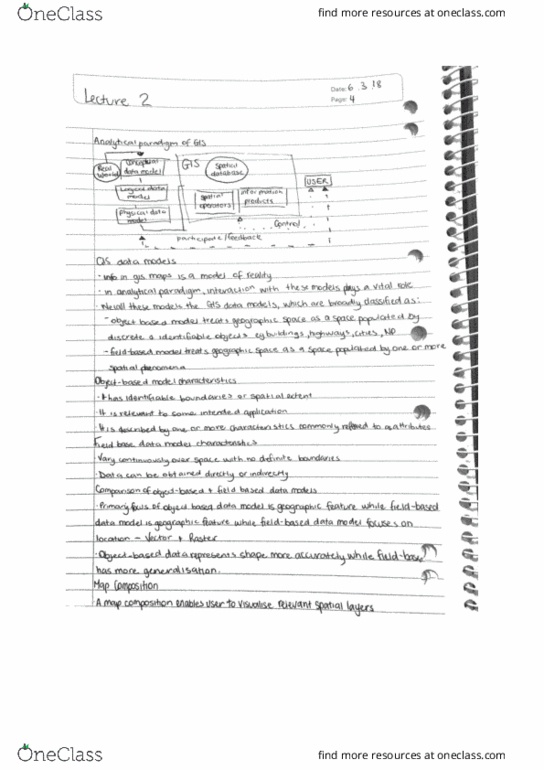 OneClass
find more resources at oneclass.com
Lecture 2
Date: 6 . 3 . 18
Page: 4
Analytical paradigm of GIS
Real World
Conceptual data model
GIS
Spatial database
USER
Logical data model
Spatial operators
information products
Physical data model
Control
Participate/feedback
GIS data models
· info in gis maps is a model of reality
· in analytical paradigm, interaction with these models plays a vital role
· We call these models the GIS data models, which are broadly classified as:
- object based model treats geographic space as a space populated by
discrete & identifiable objects eg buildings, highways, cities,
- field-based model treats geographic space as a space populated by one or more
spatial phenomena
Object-based model characteristics
· It has identifiable boundaries or spatial extent
· It is relevant to some intended application
· It is described by one or more characteristics commonly reffered to as attributes
Field base data model characteristics
· Vary continuously over space with no definite boundaries
· Data can be obtained directly or indirectly
Comparison of object-based & field based data models
· Primary focus of object based data model is geographic feature while field-based
data model is geographic feature while field-based data model focuses on
location - Vector & Raster
· Object-based data represents shape more accurately while field-base
has more generalisation.
Map Composition
A map composition enables user to visualise relevant spatial layers
OneClass
find more resources at oneclass.com